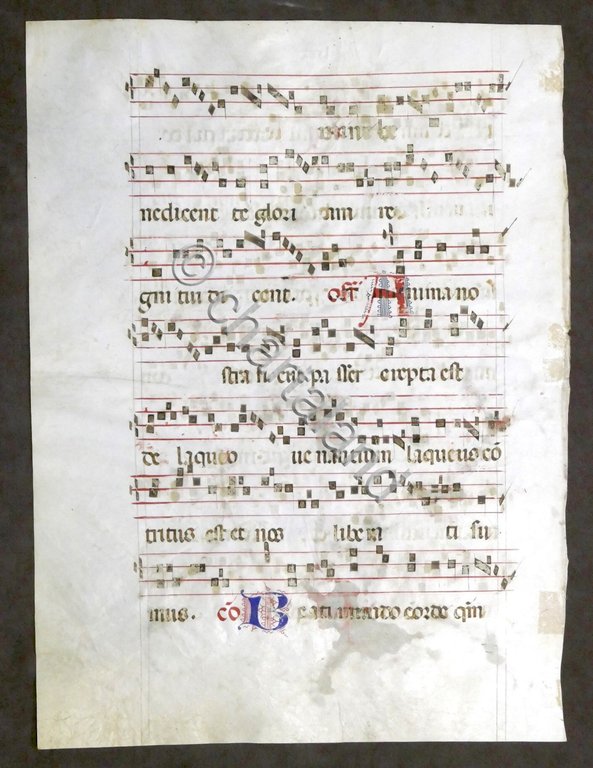 bene
nedicent te glori am re
gni tui di cent. off Anima no
stra si cut pa sser erepta est
de laqueo ue nantium laqueus cō
tritus est et nos libera ti su
mus. cō Beati mundo corde qm̄
© chartaland